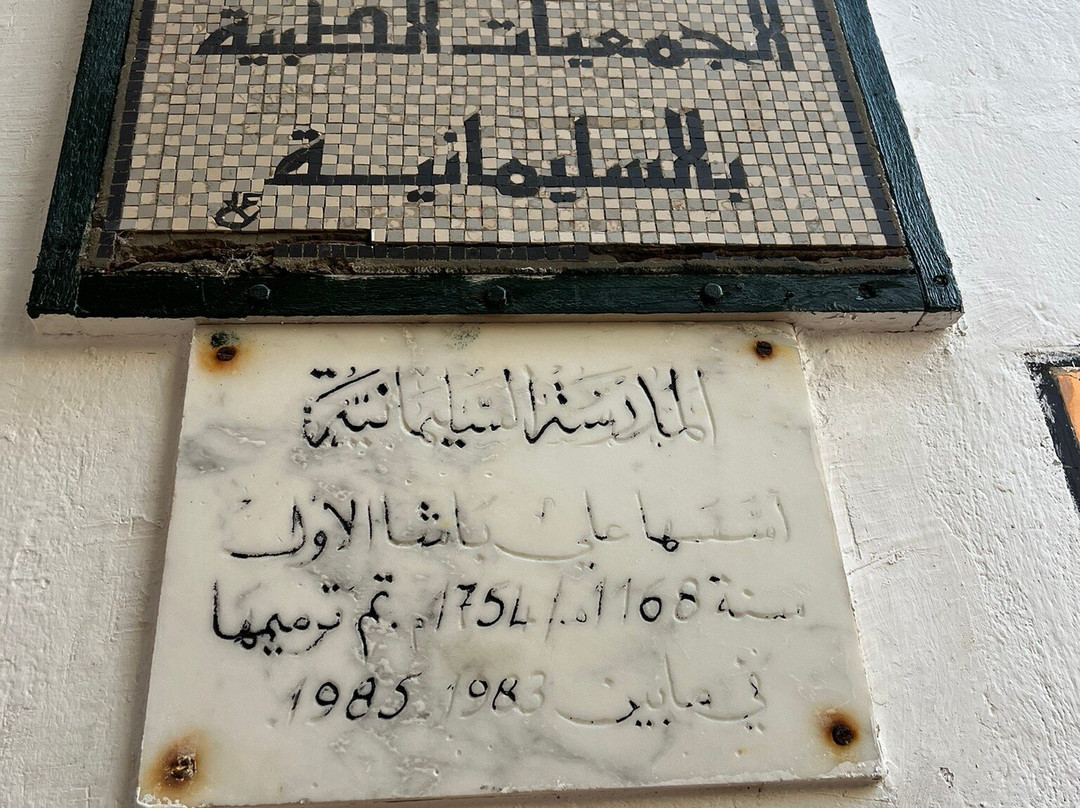 الجمعيات الطبية
بالسليمانية
المدرسة السليمانية
أسسها علي باشا الاول
سنة 1168هـ / 1754م. تم ترميمها
في مابين 1983 1985